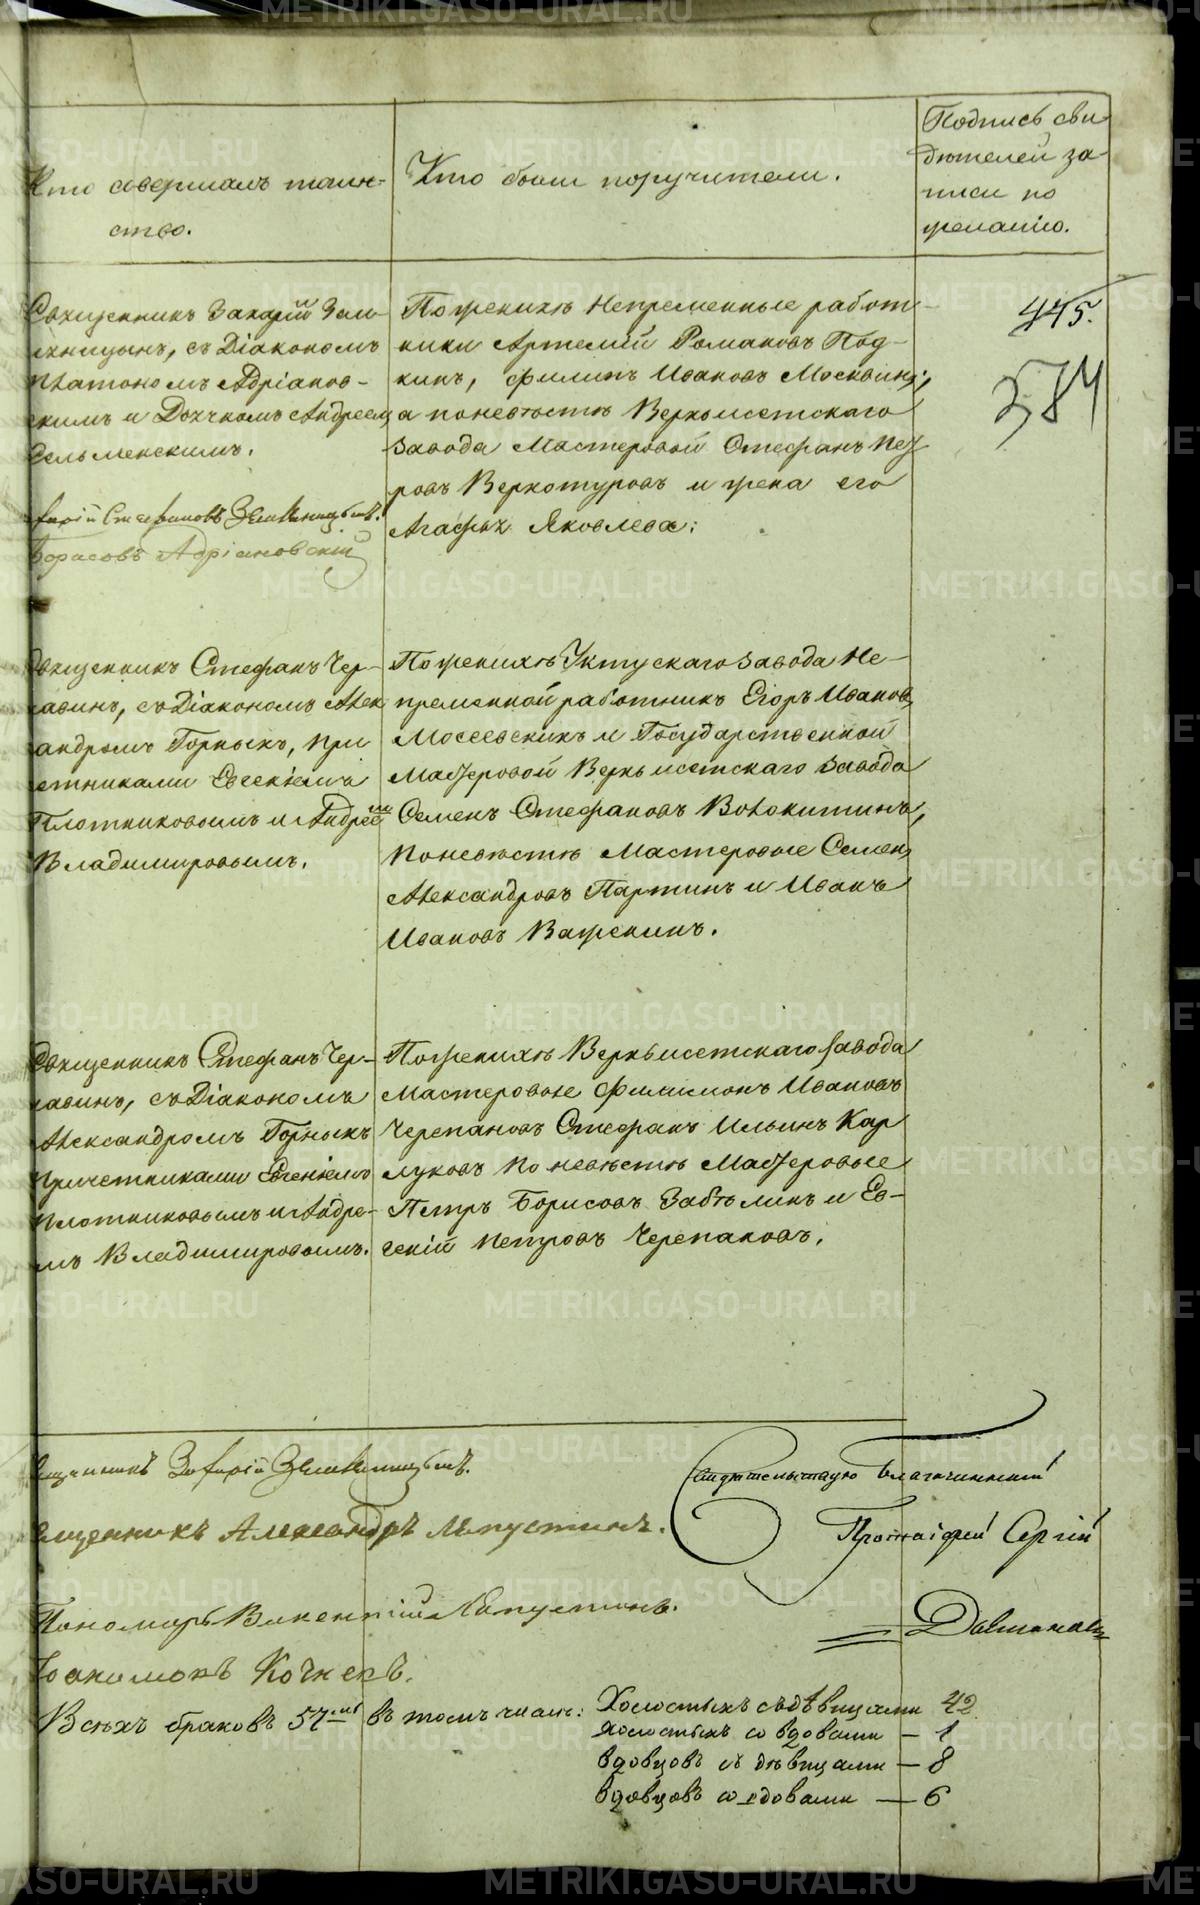 Кто совершалъ таин-
ство.
Кто были поручители.
Подпись сви
дѣтелей за
писи по
желанію.
445.
584
Священникъ Захарій Зем
ляницынъ, съ Діакономъ
Платономъ Адріанов-
скимъ и Дьячкомъ Андреемъ
Сельменскимъ.
Захарій Стефановъ Земляницынъ.
Борисовъ Адріановскій
По женихѣ Непременные работ-
ники Артемій Романовъ Под-
кинъ, Филипъ Ивановъ Москвинъ;
а по невѣстѣ Верхъисетскаго
завода Мастеровой Стефанъ Пет
ровъ Верхотуровъ и жена его
Агафья Яковлева:
Священникъ Стефанъ Чер-
кавинъ, съ Діакономъ Алек
андромъ Горныхъ, при
етниками Евсекіемъ
Плотниковымъ и Андреемъ
Владимировымъ.
По женихѣ Уктускаго завода Не-
пременной работникъ Егоръ Ивановъ
Мосеевскихъ и Государственной
Мастеровой Верхъисетскаго завода
Семенъ Стефановъ Волокитинъ,
по невѣстѣ Мастеровые Семенъ
Александровъ Партинъ и Иванъ
Ивановъ Важенинъ.
Священникъ Стефанъ Чер-
кавинъ, съ Діакономъ
Александромъ Горныхъ
причетниками Евгеніемъ
Плотниковымъ и Андре-
мъ Владимировымъ.
По женихѣ Верхъисетскаго завода
Мастеровые Филимонъ Ивановъ
Черепановъ Стефанъ Ильинъ Кар
луковъ по невѣстѣ Мастеровые
Петръ Борисовъ Забѣлинъ и Ев-
секій Петровъ Черепановъ.
Священникъ Захарій Земляницынъ.
Священникъ Александръ Лапустинъ.
Пономарь Викентій Лапустинъ.
Кочневъ.
Свидѣтельствую Благочинный
Протоіерей Сергій
Всѣхъ браковъ 57мь въ томъ числѣ: Холостыхъ съ дѣвицами 42
холостыхъ со вдовами — 1
вдовцовъ съ дѣвицами — 8
вдовцовъ со вдовами — 6
METRIKI.GASO-URAL.RU